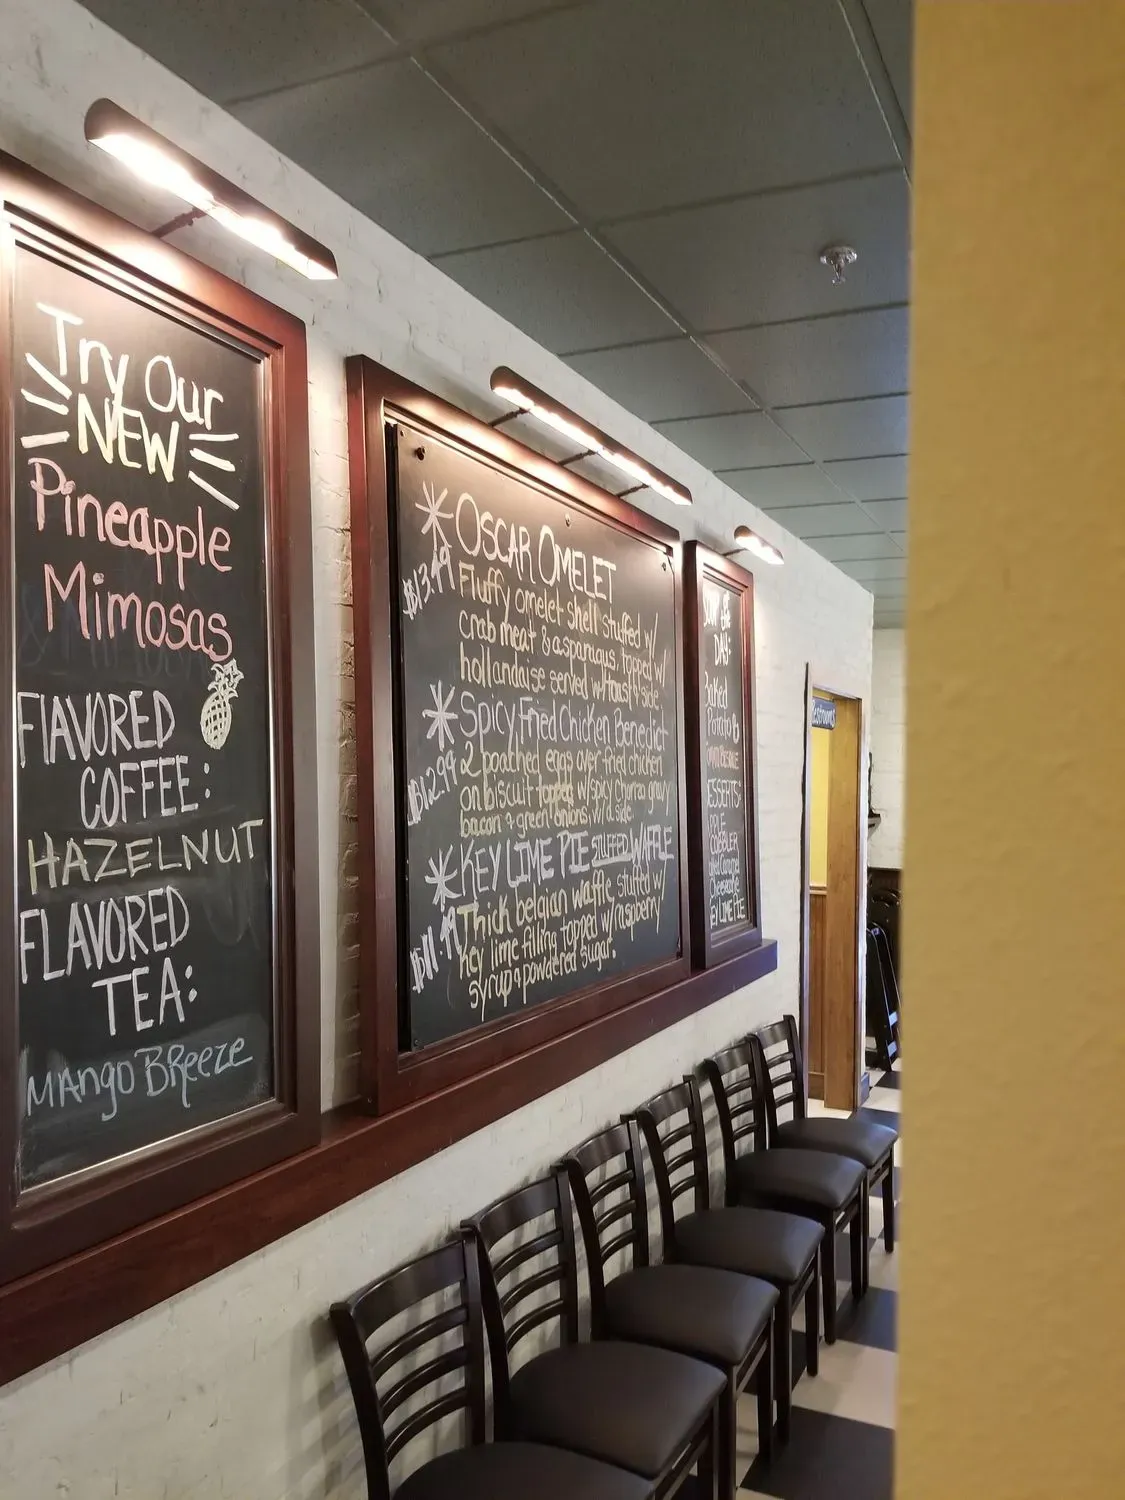 Try Our
NEW
Pineapple
Mimosas
FLAVORED
COFFEE:
HAZELNUT
FLAVORED
TEA:
MANGO BREEZE
OSCAR OMELET
$13.49
Fluffy omelet shell stuffed w/
crab meat & asparagus, topped w/
hollandaise served w/toast & side.
Spicy Fried Chicken Benedict
$12.99
2 poached eggs over fried chicken
on biscuit topped w/spicy gravy
bacon & green onions, w/a side.
KEY LIME PIE STUFFED WAFFLE
$11.49
Thick belgian waffle, stuffed w/
key lime filling topped w/raspberry
syrup & powdered sugar.
of the
DAY:
Baked
Potato &
DESSERTS:
APPLE
COBBLER
Caramel
Cheesecake
KEY LIME PIE
Restrooms